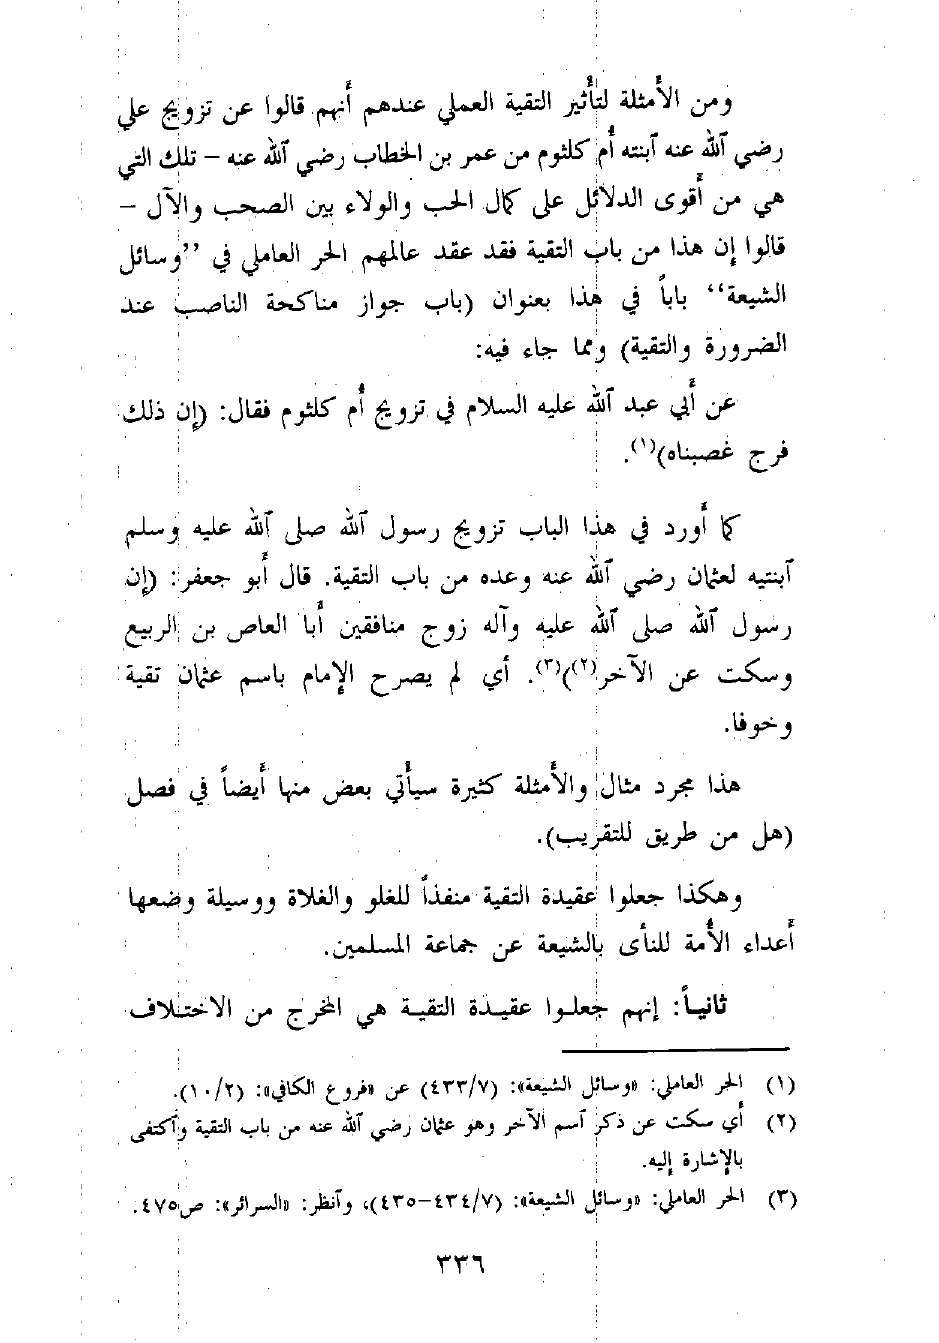 ومن الأمثلة لتأثير التقية العملي عندهم أنهم قالوا عن تزويج علي
رضي الله عنه ابنته أم كلثوم من عمر بن الخطاب رضي الله عنه – تلك التي
هي من أقوى الدلائل على كمال الحب والولاء بين الصحب والآل –
قالوا إن هذا من باب التقية فقد عقد عالمهم الحر العاملي في ”وسائل
الشيعة“ باباً في هذا بعنوان (باب جواز مناكحة الناصب عند
الضرورة والتقية) ومما جاء فيه:
عن أبي عبد الله عليه السلام في تزويج أم كلثوم فقال: (إن ذلك
فرج غصبناه)(١).
كما أورد في هذا الباب تزويج رسول الله صلى الله عليه وسلم
ابنتيه لعثمان رضي الله عنه وعده من باب التقية. قال أبو جعفر: (إن
رسول الله صلى الله عليه وآله زوج منافقين أبا العاص بن الربيع
وسكت عن الآخر(٢))(٣). أي لم يصرح الإمام باسم عثمان تقية
وخوفا.
هذا مجرد مثال والأمثلة كثيرة سيأتي بعض منها أيضاً في فصل
(هل من طريق للتقريب).
وهكذا جعلوا عقيدة التقية منفذاً للغلو والغلاة ووسيلة وضعها
أعداء الأمة للنأى بالشيعة عن جماعة المسلمين.
ثانياً: إنهم جعلوا عقيدة التقية هي المخرج من الاختلاف
(١) الحر العاملي: «وسائل الشيعة»: (٤٣٣/٧) عن «فروع الكافي»: (١٠/٢).
(٢) أي سكت عن ذكر اسم الآخر وهو عثمان رضي الله عنه من باب التقية واكتفى
بالإشارة إليه.
(٣) الحر العاملي: «وسائل الشيعة»: (٤٣٤/٧–٤٣٥)، وانظر: «السرائر»: ص٤٧٥.
٣٣٦